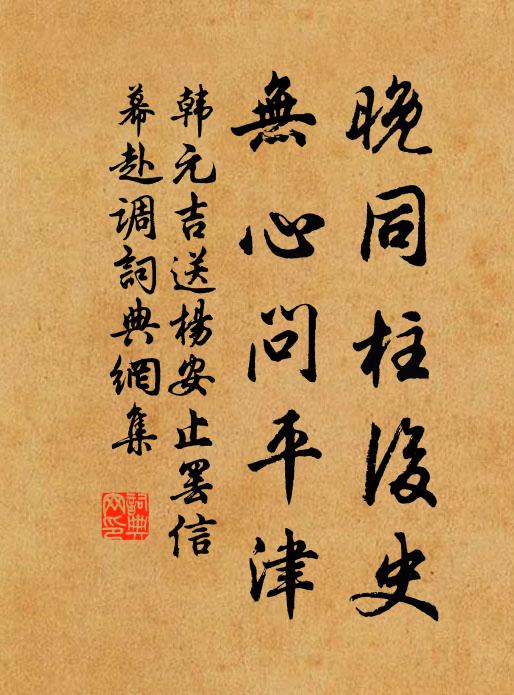 晚同柱後史
無心問平津
韩元吉送楊安止罢信
幕赴调詞典網集
詞典网印